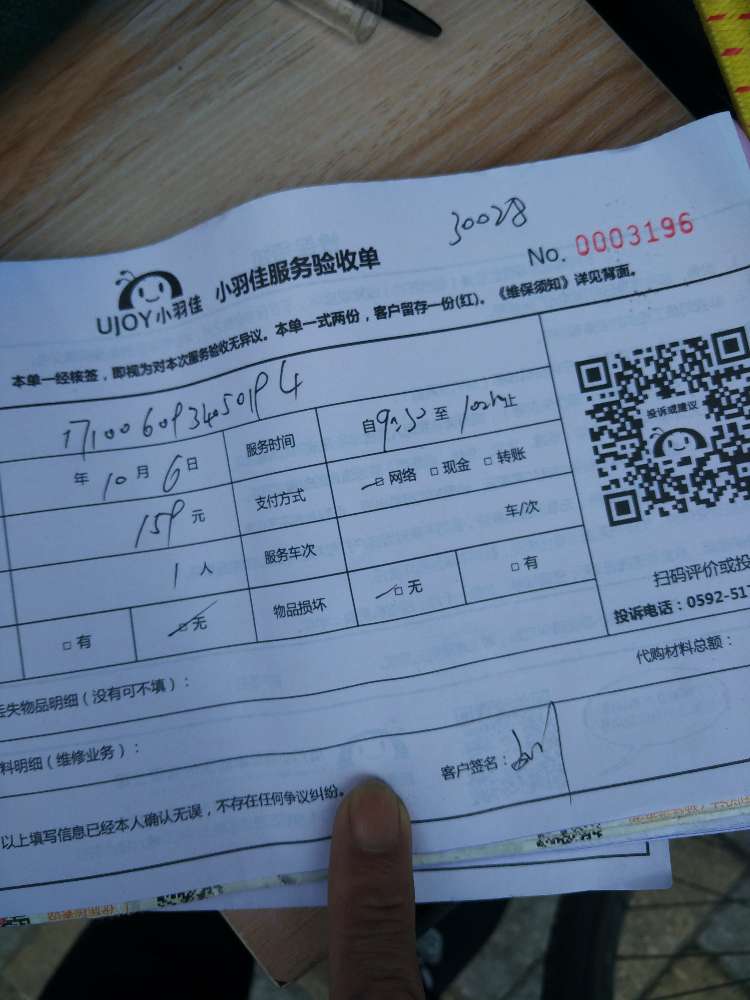 30028
UJOY小羽佳 小羽佳服务验收单 No. 0003196
本单一经核签，即视为对本次服务验收无异议。本单一式两份，客户留存一份(红)。《维保须知》详见背面。
年10月6日 服务时间 自9:30至 止
159元 支付方式 网络 □现金 □转账
1人 服务车次 车/次
□有 □无 物品损坏 □无 □有
投诉或建议
扫码评价或投
投诉电话：0592-517
失物品明细（没有可不填）： 代购材料总额：
料明细（维修业务）：
以上填写信息已经本人确认无误，不存在任何争议纠纷。 客户签名：